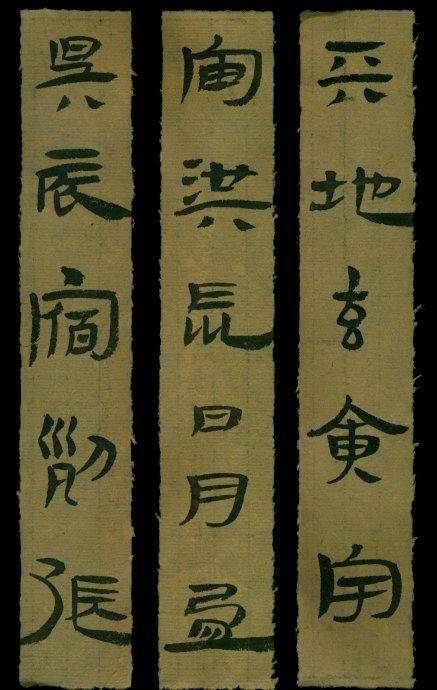 兲地玄黃宇
宙洪荒日月盈
昃辰宿列張